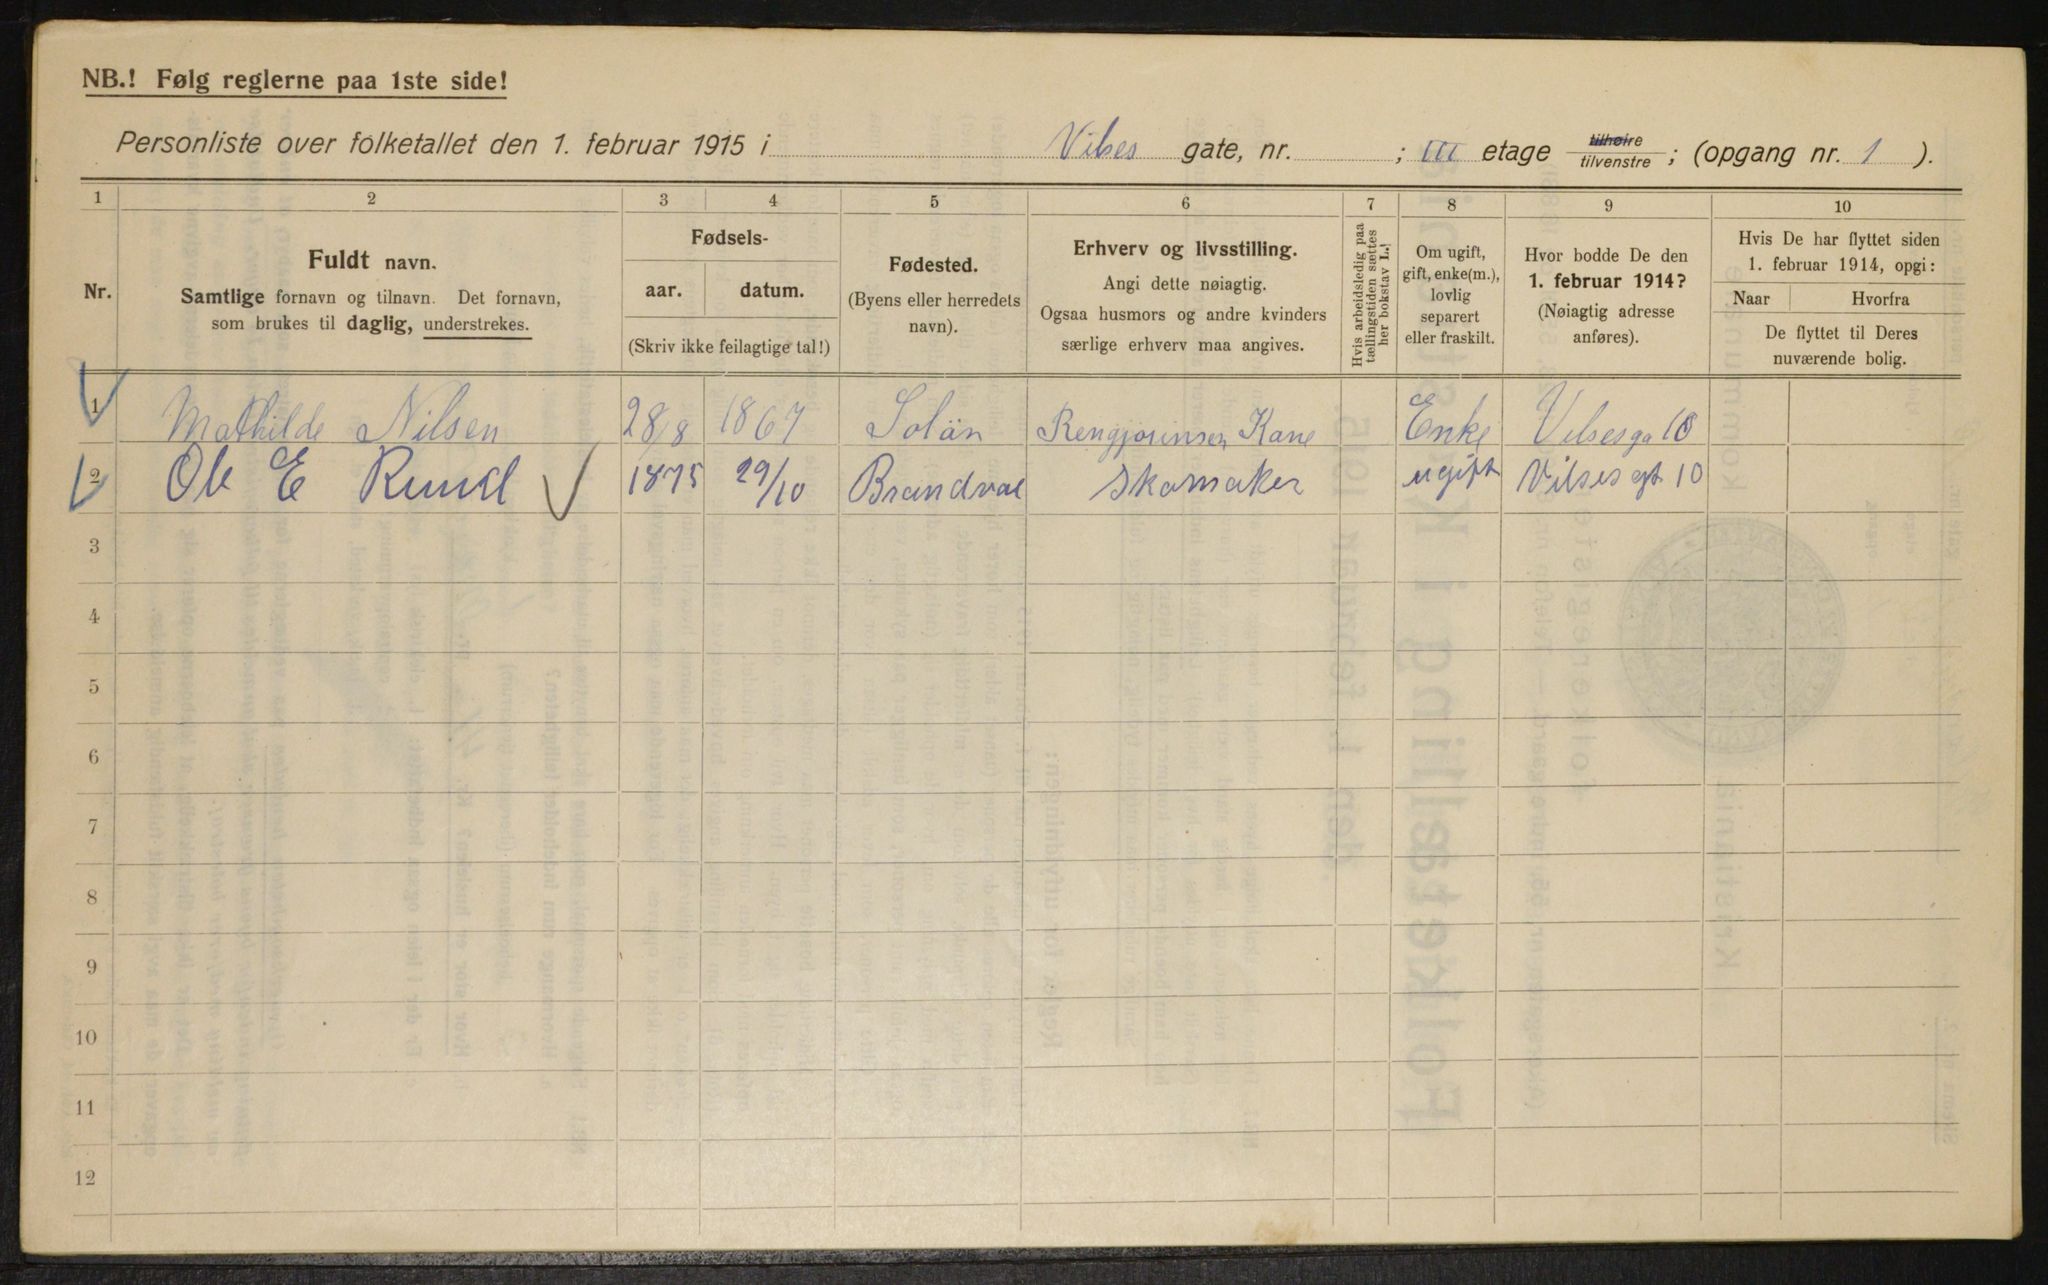 NB.! Følg reglerne paa 1ste side!
Personliste over folketallet den 1. februar 1915 i Vibes gate, nr. ; III etage tilhøire / tilvenstre ; (opgang nr. 1 ).
1 2 3 4 5 6 7 8 9 10
Nr.
Fuldt navn.
Samtlige fornavn og tilnavn. Det fornavn,
som brukes til daglig, understrekes.
Fødsels-
aar. datum.
(Skriv ikke feilagtige tal!)
Fødested.
(Byens eller herredets
navn).
Erhverv og livsstilling.
Angi dette nøiagtig.
Ogsaa husmors og andre kvinders
særlige erhverv maa angives.
Hvis arbeidsledig paa
tællingstiden sættes
her bokstav L.!
Om ugift,
gift, enke(m.),
lovlig
separert
eller fraskilt.
Hvor bodde De den
1. februar 1914?
(Nøiagtig adresse
anføres).
Hvis De har flyttet siden
1. februar 1914, opgi:
Naar Hvorfra
De flyttet til Deres
nuværende bolig.
1 Mathilde Nilsen 28/8 1867 Solör Rengjørinsen Kone Enke Vibesga 10
2 Ole E Ruud 1875 29/10 Brandval Skomaker ugift Vibes gt 10
3
4
5
6
7
8
9
10
11
12